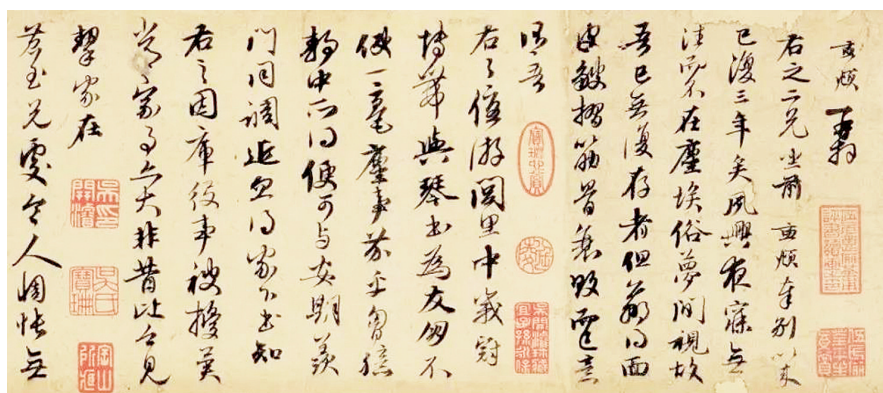 孟頫 再拜
右之二兄坐前 孟頫奉別以來
已復三年矣夙興夜寐無
往而不在塵埃俗夢間視故
吾已無復存者但羸得面
皮皺摺筋骨衰敗而已意
謂吾
右之優游閭里中峨冠
博帶與琴書為友朋不
使一毫塵事芥乎胸臆
靜中所得便可与安期羨
門同調近忽得家下書知
右之因庫役事被擾異
常家事亦大非昔比今見
挈家在
蒼玉兄處令人惆悵無